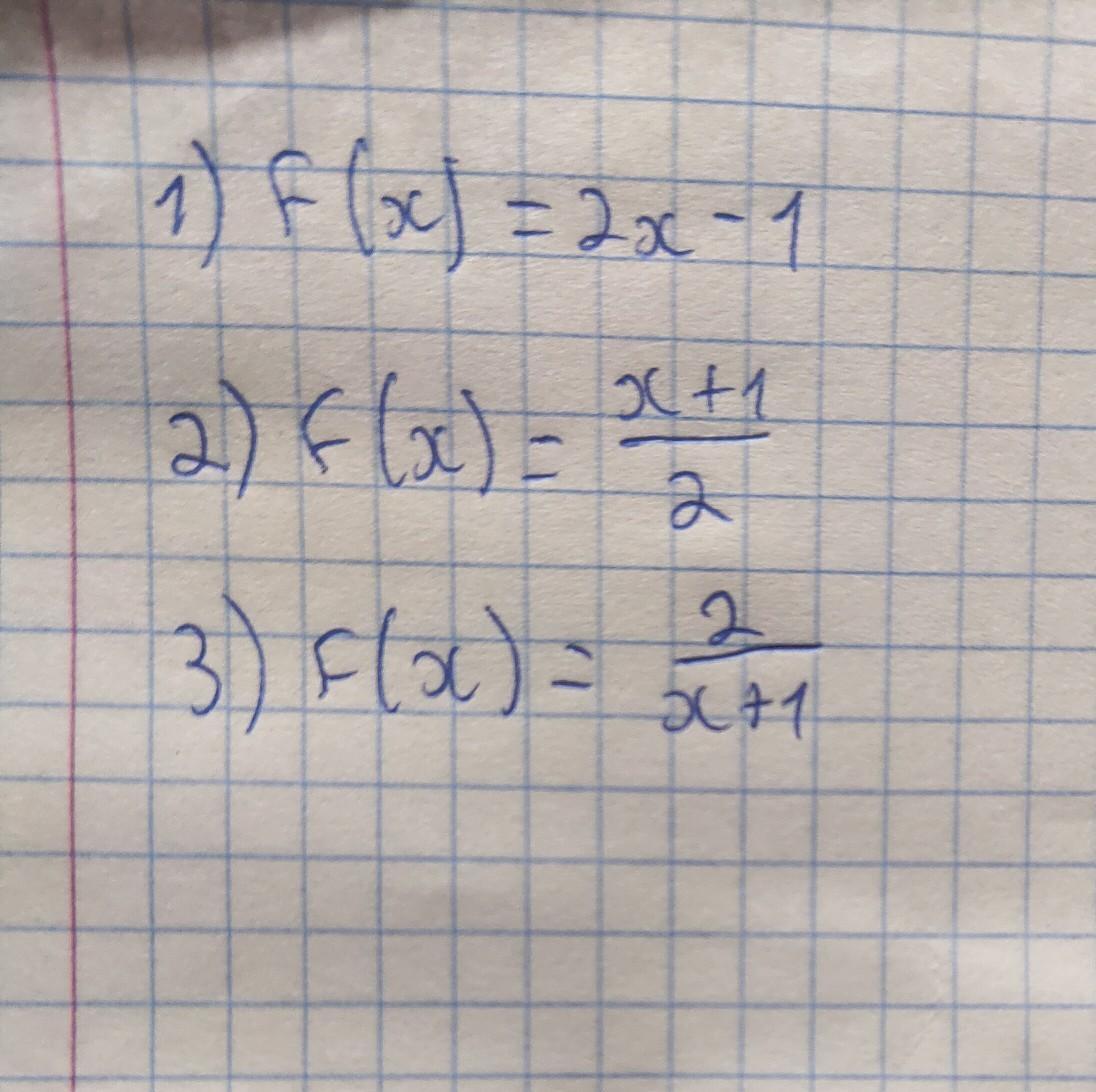 1) F(x) = 2x - 1
2) F(x) = \frac{x+1}{2}
3) F(x) = \frac{2}{x+1}